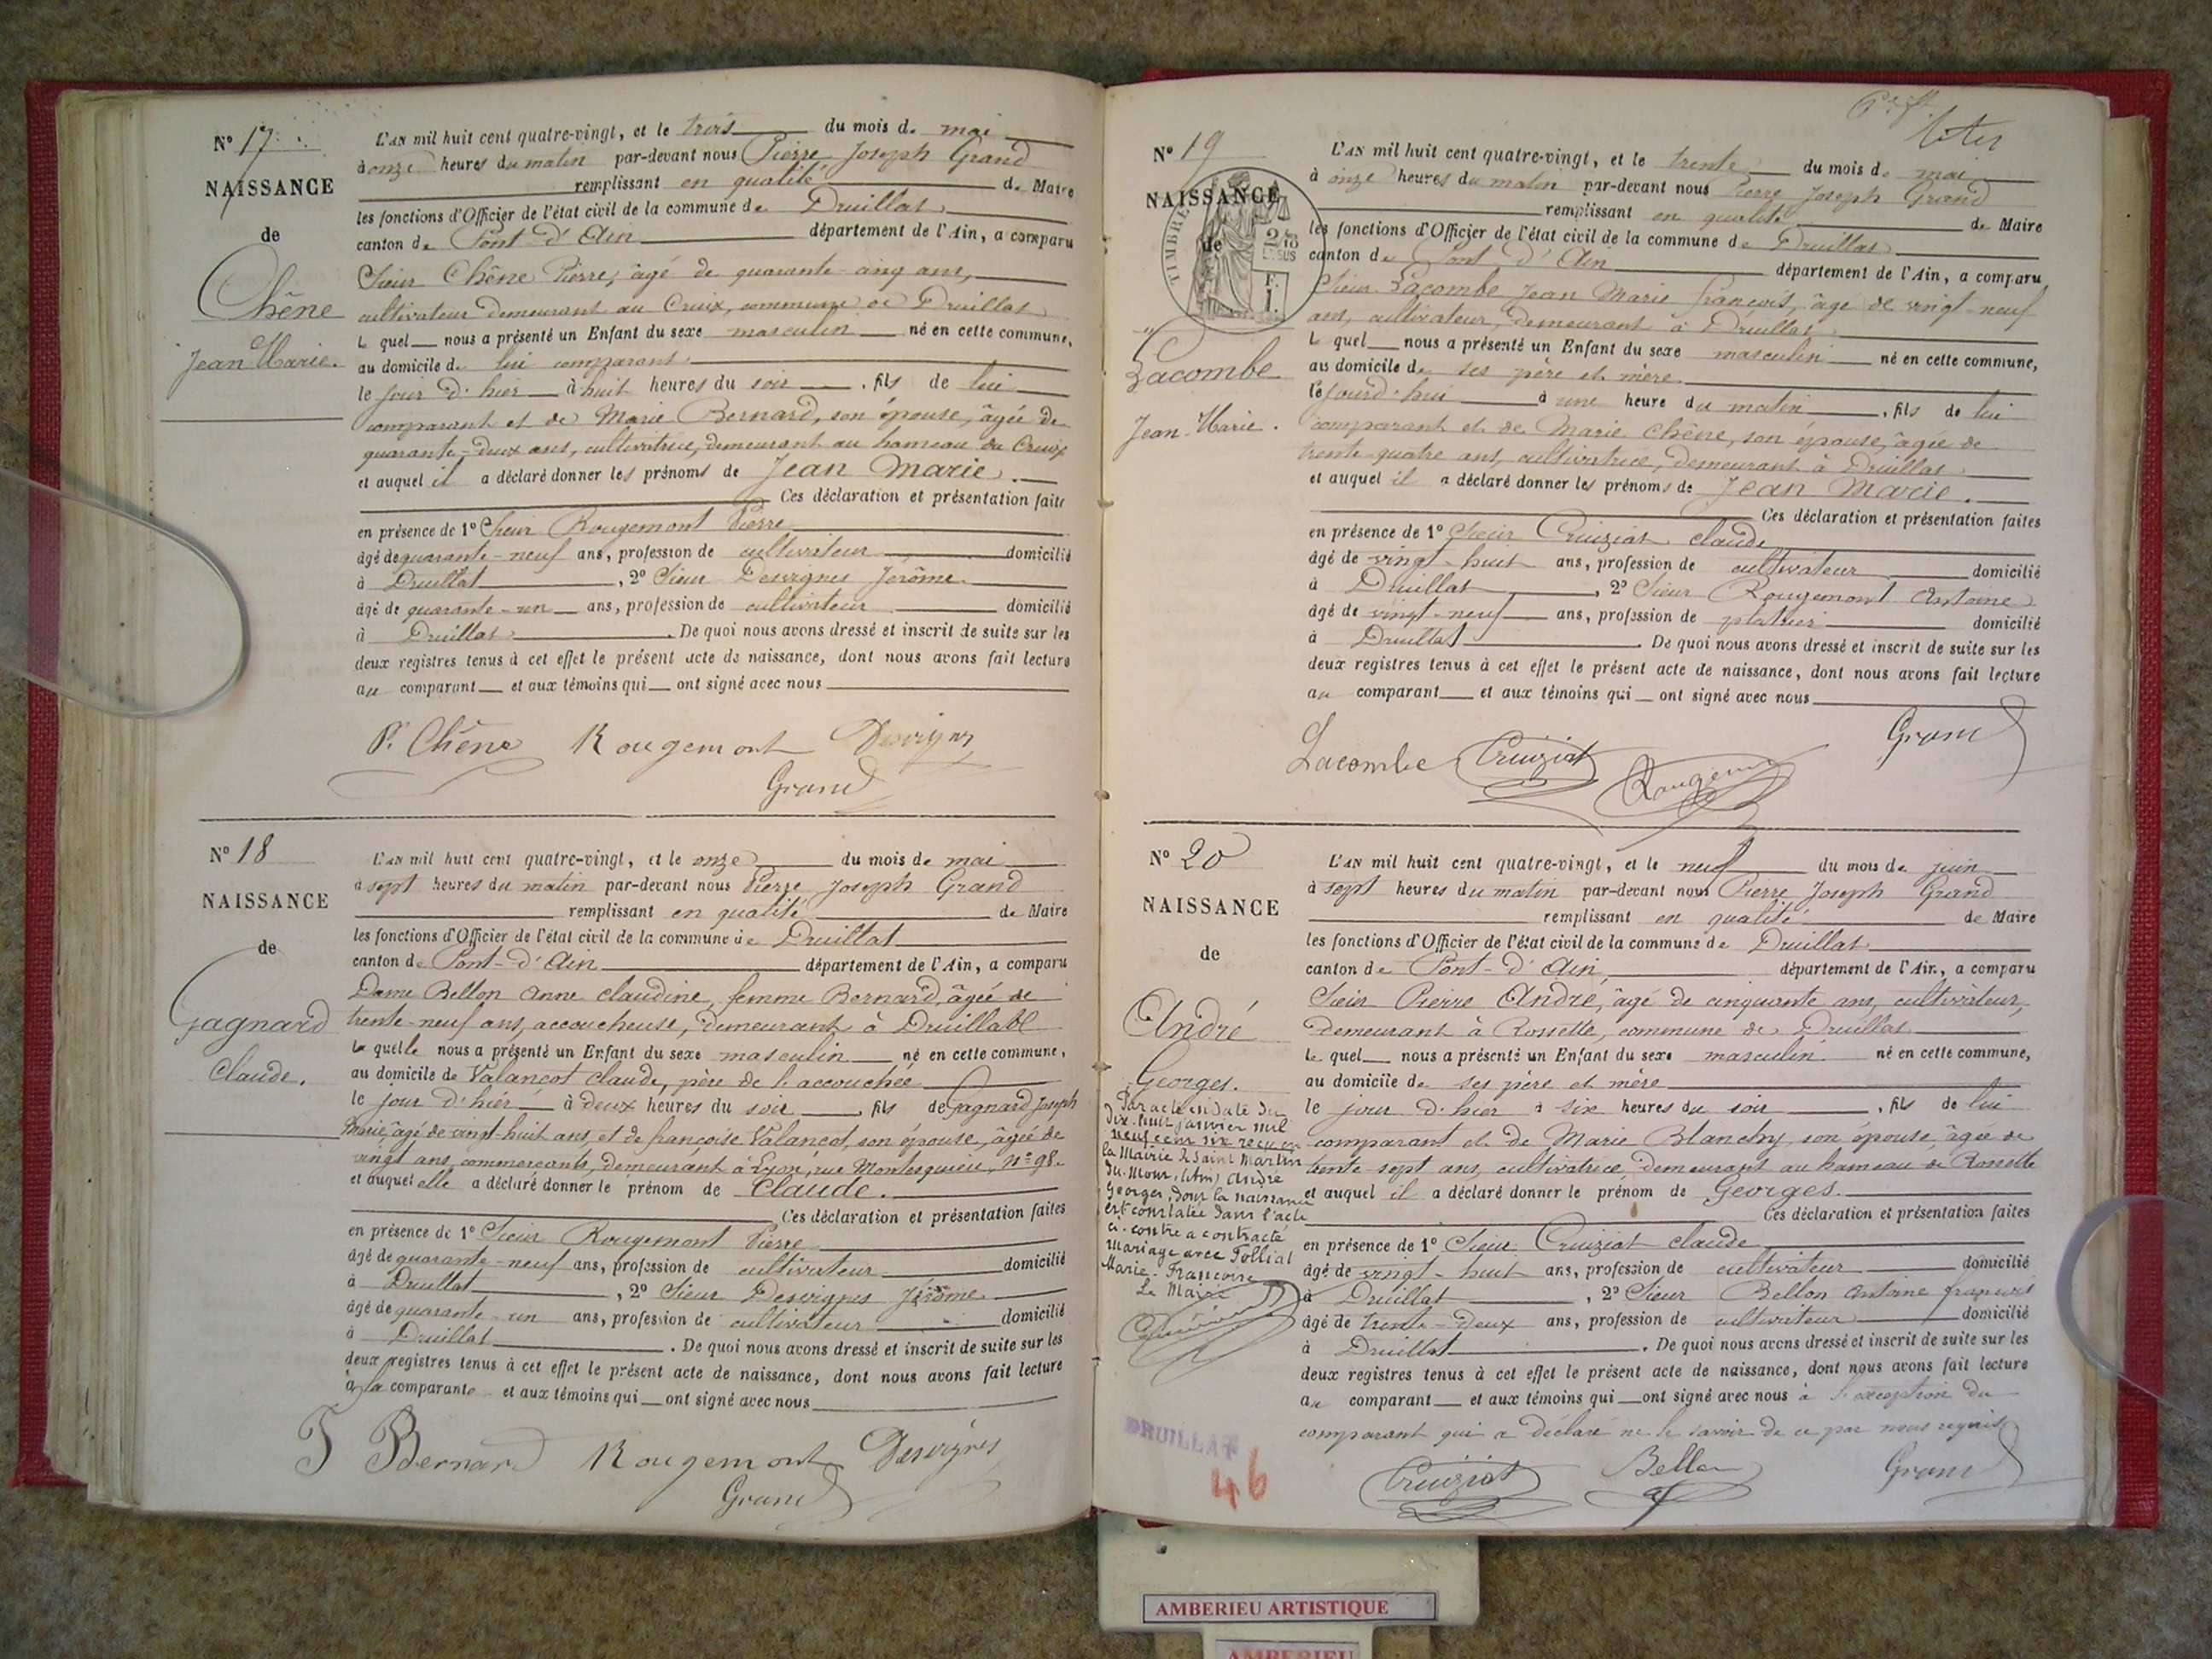 N° 17
NAISSANCE
de
Chêne
Jean Marie.
L'AN mil huit cent quatre-vingt, et le trois du mois de mai
à onze heures du matin par-devant nous Pierre Joseph Grand
remplissant en qualité de Maire
les fonctions d'Officier de l'état civil de la commune de Druillat
canton de Pont-d'Ain département de l'Ain, a comparu
Sieur Chêne Pierre, âgé de quarante-cinq ans,
cultivateur demeurant au Creux, commune de Druillat
Lequel nous a présenté un Enfant du sexe masculin né en cette commune,
au domicile de lui comparant
le jour d'hier à huit heures du soir, fils de lui
comparant et de Marie Bernard, son épouse, âgée de
quarante-deux ans, cultivatrice, demeurant au hameau du Creux
et auquel il a déclaré donner les prénoms de Jean Marie.
Ces déclaration et présentation faites
en présence de 1° Sieur Rougemont Pierre
âgé de quarante-neuf ans, profession de cultivateur domicilié
à Druillat, 2° Sieur Desvignes Jérôme
âgé de quarante-un ans, profession de cultivateur domicilié
à Druillat. De quoi nous avons dressé et inscrit de suite sur les
deux registres tenus à cet effet le présent acte de naissance, dont nous avons fait lecture
au comparant et aux témoins qui ont signé avec nous
P. Chêne Rougemont Desvignes
Grand
N° 18
NAISSANCE
de
Gagnard
Claude.
L'AN mil huit cent quatre-vingt, et le onze du mois de mai
à sept heures du matin par-devant nous Pierre Joseph Grand
remplissant en qualité de Maire
les fonctions d'Officier de l'état civil de la commune de Druillat
canton de Pont-d'Ain département de l'Ain, a comparu
Dame Bellon Anne Claudine, femme Bernard, âgée de
trente-neuf ans, accoucheuse, demeurant à Druillat
Laquelle nous a présenté un Enfant du sexe masculin né en cette commune,
au domicile de Valancot Claude, père de l'accouchée
le jour d'hier à deux heures du soir, fils de Gagnard Joseph
Marie, âgé de vingt-huit ans, et de françoise Valancot, son épouse, âgée de
vingt ans, commerçants, demeurant à Lyon, rue Montesquieu, N° 98.
et auquel elle a déclaré donner le prénom de Claude.
Ces déclaration et présentation faites
en présence de 1° Sieur Rougemont Pierre
âgé de quarante-neuf ans, profession de cultivateur domicilié
à Druillat, 2° Sieur Desvignes Jérôme
âgé de quarante-un ans, profession de cultivateur domicilié
à Druillat. De quoi nous avons dressé et inscrit de suite sur les
deux registres tenus à cet effet le présent acte de naissance, dont nous avons fait lecture
à la comparante et aux témoins qui ont signé avec nous
F Bernard Rougemont Desvignes
Grand
N° 19
NAISSANCE
de
TIMBRE
2/10
EN SUS
F.
1.
Lacombe
Jean-Marie.
L'AN mil huit cent quatre-vingt, et le trente du mois de mai
à onze heures du matin par-devant nous Pierre Joseph Grand
remplissant en qualité de Maire
les fonctions d'Officier de l'état civil de la commune de Druillat
canton de Pont d'Ain département de l'Ain, a comparu
Sieur Lacombe Jean Marie françois, âgé de vingt-neuf
ans, cultivateur, demeurant à Druillat
Lequel nous a présenté un Enfant du sexe masculin né en cette commune,
au domicile de ses père et mère
cejourd'hui à une heure du matin, fils de lui
comparant et de Marie Chêne, son épouse, âgée de
trente-quatre ans, cultivatrice, demeurant à Druillat
et auquel il a déclaré donner les prénoms de Jean Marie.
Ces déclaration et présentation faites
en présence de 1° Sieur Cruiziat Claude
âgé de vingt-huit ans, profession de cultivateur domicilié
à Druillat, 2° Sieur Rougemont Antoine
âgé de vingt-neuf ans, profession de platrier domicilié
à Druillat. De quoi nous avons dressé et inscrit de suite sur les
deux registres tenus à cet effet le présent acte de naissance, dont nous avons fait lecture
au comparant et aux témoins qui ont signé avec nous
Lacombe Cruiziat Rougemont Grand
N° 20
NAISSANCE
de
André
Georges.
Par acte en date du
dix-huit janvier mil
neuf cent six reçu en
la Mairie de Saint Martin
du-Mont, (Ain) André
Georges, dont la naissance
est constatée dans l'acte
ci-contre a contracté
mariage avec Folliat
Marie-Françoise
Le Maire
L'AN mil huit cent quatre-vingt, et le neuf du mois de juin
à sept heures du matin par-devant nous Pierre Joseph Grand
remplissant en qualité de Maire
les fonctions d'Officier de l'état civil de la commune de Druillat
canton de Pont-d'Ain département de l'Ain, a comparu
Sieur Pierre André, âgé de cinquante ans, cultivateur,
demeurant à Rossette, commune de Druillat
Lequel nous a présenté un Enfant du sexe masculin né en cette commune,
au domicile de ses père et mère
le jour d'hier à six heures du soir, fils de lui
comparant et de Marie Blanchy, son épouse, âgée de
trente-sept ans, cultivatrice, demeurant au hameau de Rossette
et auquel il a déclaré donner le prénom de Georges.
Ces déclaration et présentation faites
en présence de 1° Sieur Cruiziat Claude
âgé de vingt-huit ans, profession de cultivateur domicilié
à Druillat, 2° Sieur Bellon Antoine françois
âgé de trente-deux ans, profession de cultivateur domicilié
à Druillat. De quoi nous avons dressé et inscrit de suite sur les
deux registres tenus à cet effet le présent acte de naissance, dont nous avons fait lecture
au comparant et aux témoins qui ont signé avec nous à l'exception du
comparant qui a déclaré ne le savoir de ce par nous requis
Cruiziat Bellon Grand
DRUILLAT
46
AMBERIEU ARTISTIQUE
AMBERIEU